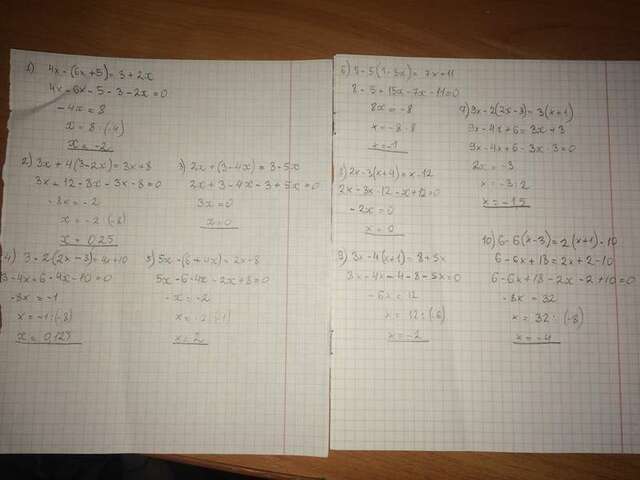 1) 4x-(6x+5)=3+2x
4x-6x-5-3-2x=0
-4x=8
x=8:(-4)
x=-2
2x+(3-4x)=3-5x
2x+3-4x-3+5x=0
3x=0
x=0
-8x=-2
x=-2:(-8)
x=0,25
4) 3-2(2x-3)=4x+10
3-4x+6-4x-10=0
-8x=-1
x=-1:(-8)
x=0,125
5x-(6+4x)=2x-8
5x-6-4x-2x+8=0
-x=-2
x=-2:(-1)
x=2
8x=-8
x=-8:8
x=-1
3x-4x+6=3x+3
3x-4x+6-3x-3=0
2x=-3
x=-3:2
x=-1,5
2x-3(x+4)=x-12
2x-3x-12-x+12=0
-2x=0
x=0
9) 3x-4(x+1)=8+5x
3x-4x-4-8-5x=0
-6x=12
x=12:(-6)
x=-2
10) 6-6(x-3)=2(x+1)-10
6-6x+18=2x+2-10
6-6x+18-2x-2+10=0
-8x=32
x=32:(-8)
x=-4